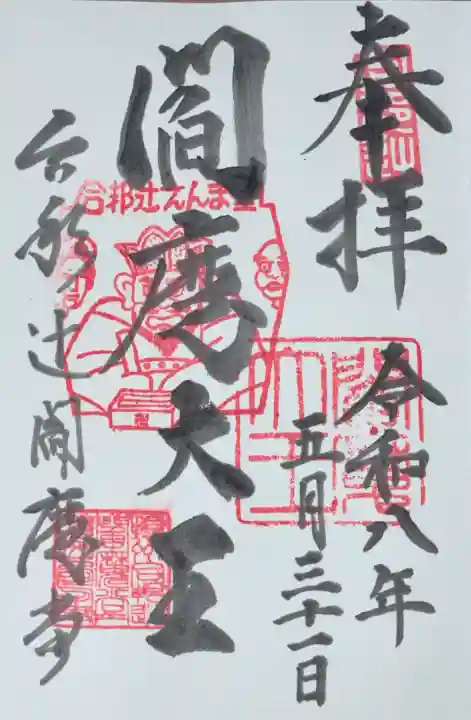 奉拝
令和八年
五月三十一日
閻魔大王
合邦辻えんま堂
合邦辻閻魔堂